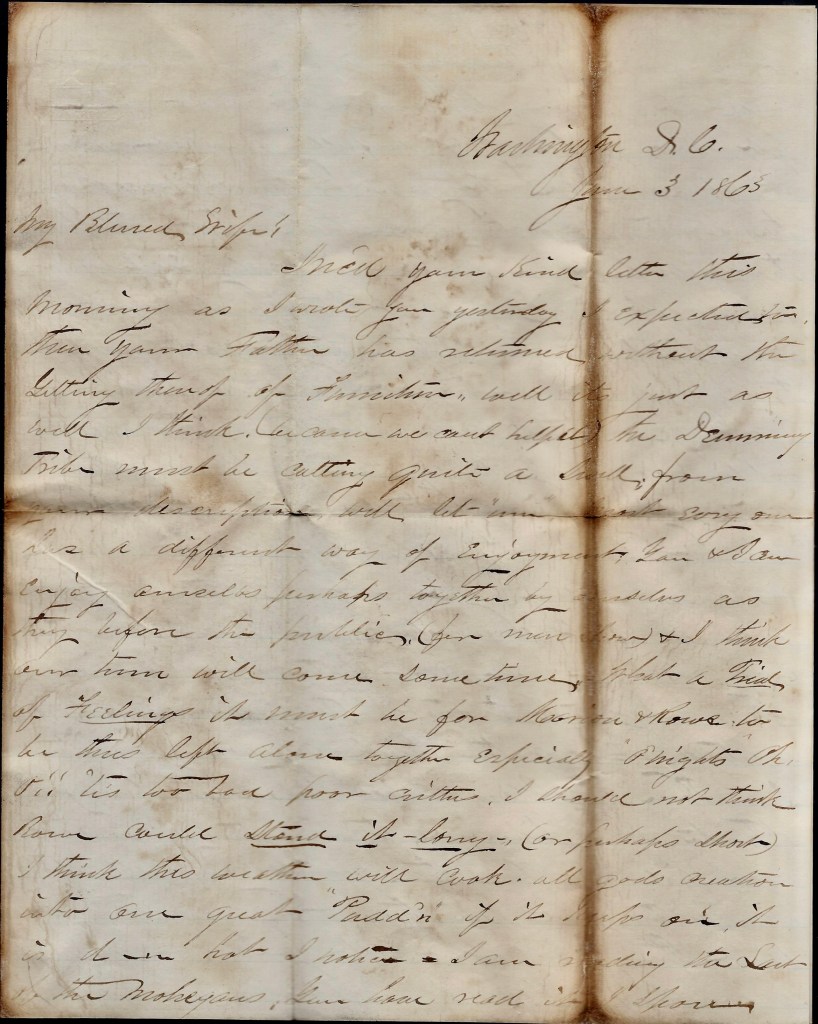 Washington D.C.
June 3 1863
My Blessed Wife!
I rec'd your kind letter this
Morning as I wrote you yesterday I expected to,
then your Father has returned without the
Getting of Furniture, well its just as
well I think. (because we cant help it) the Demming
Tribe must be cutting quite a from
your description, well let 'um, most every one
has a different way of enjoyment, You & I can
enjoy ourselves perhaps together by ourselves as
they before the public, (for mere show) & I think
our turn will come sometime, What a Trial
of Feelings it must be for Marion & Rowe to
be thus left alone together especially "O'nights" Oh,
O!! 'tis too bad poor critters. I should not think
Rowe could stand it - long -, (or perhaps short)
I think this weather will cook all gods creation
into one great "Pudd'n" if it keeps on, it
is d—n hot I notice - I am reading the Last
of the Mohegans, You have read it I